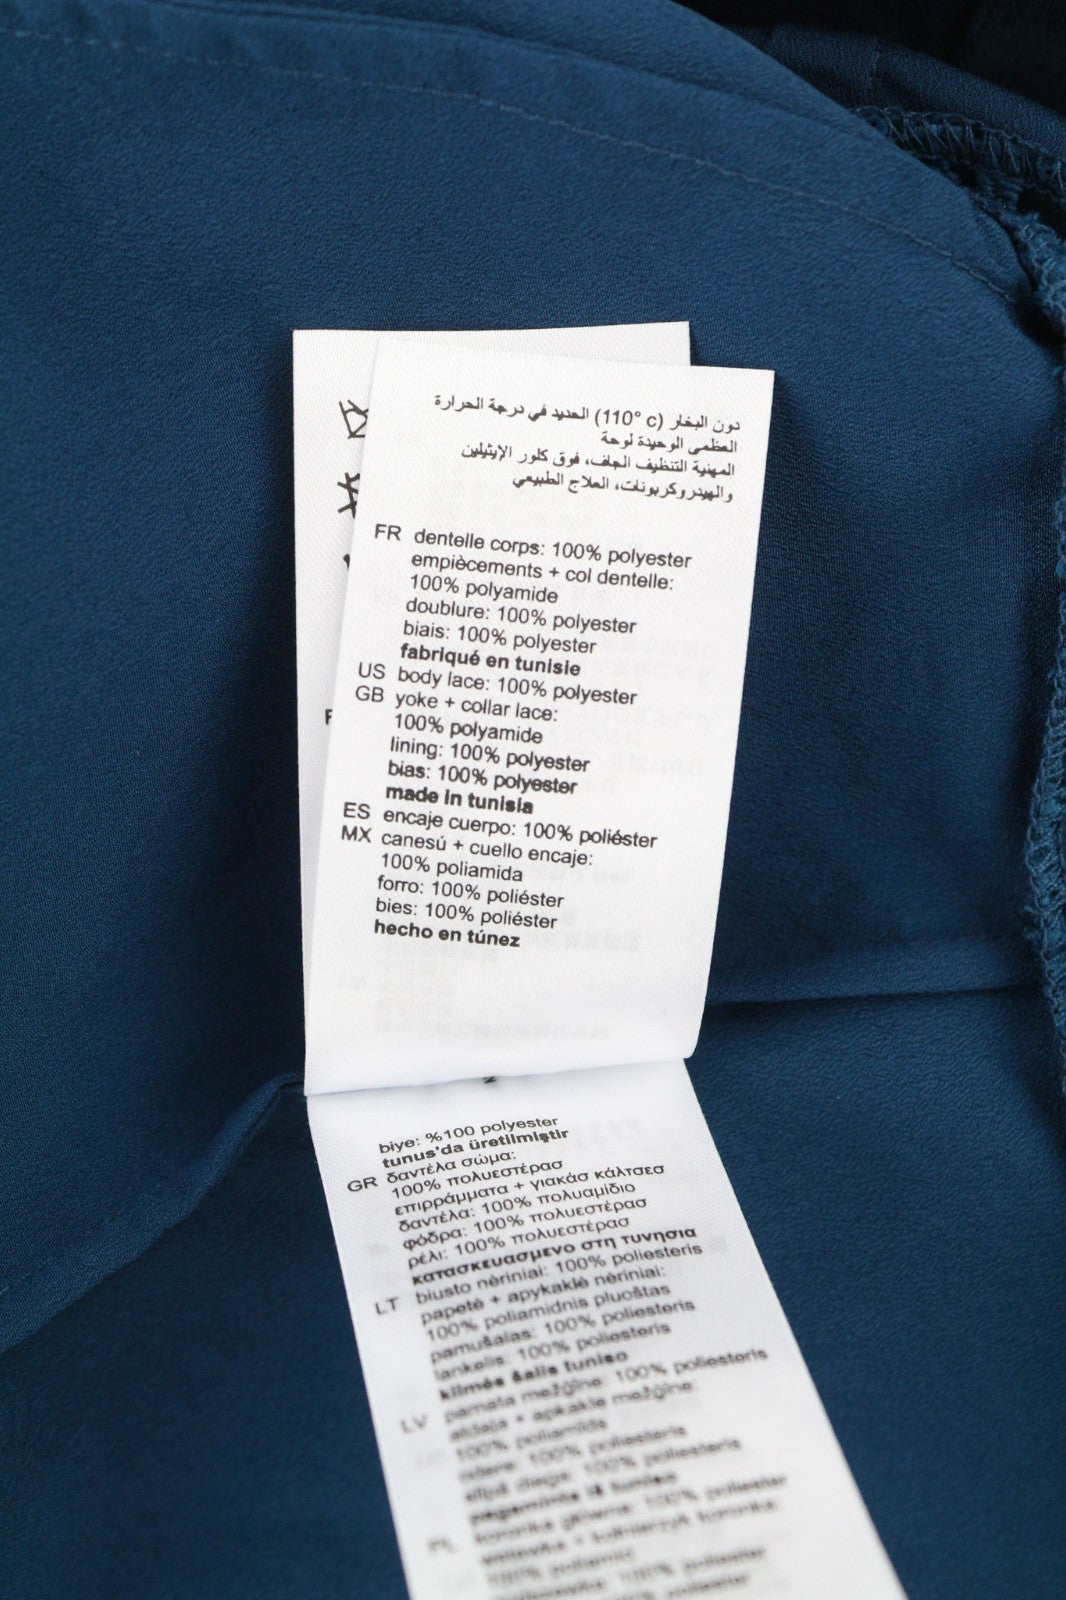 دون البخار (110° c) الحديد في درجة الحرارة
العظمى الوحيدة لوحة
المهنية التنظيف الجاف، فوق كلور الإيثيلين
والهيدروكربونات، العلاج الطبيعي
FR dentelle corps: 100% polyester
empiècements + col dentelle:
100% polyamide
doublure: 100% polyester
biais: 100% polyester
fabriqué en tunisie
US body lace: 100% polyester
GB yoke + collar lace:
100% polyamide
lining: 100% polyester
bias: 100% polyester
made in tunisia
ES encaje cuerpo: 100% poliéster
MX canesú + cuello encaje:
100% poliamida
forro: 100% poliéster
bies: 100% poliéster
hecho en túnez
biye: %100 polyester
tunus'da üretilmiştir
GR δαντέλα σώμα:
100% πολυεστέρας
επιρράμματα + γιακάσ κάλτσεσ
δαντέλα: 100% πολυαμίδιο
φόδρα: 100% πολυεστέρασ
ρέλι: 100% πολυεστέρασ
κατασκευασμενο στη τυνησια
LT biusto nėriniai: 100% poliesteris
papetė + apykaklė nėriniai:
100% poliamidnis pluoštas
pamušalas: 100% poliesteris
lankelis: 100% poliesteris
kilmės šalis tuniso
LV pamata mežģīne: 100% poliesteris
apkakle mežģīne:
100% poliamīds
odere: 100% poliesteris
100% poliesteris
PL koronka główna: 100% poliester
koronka:
100%